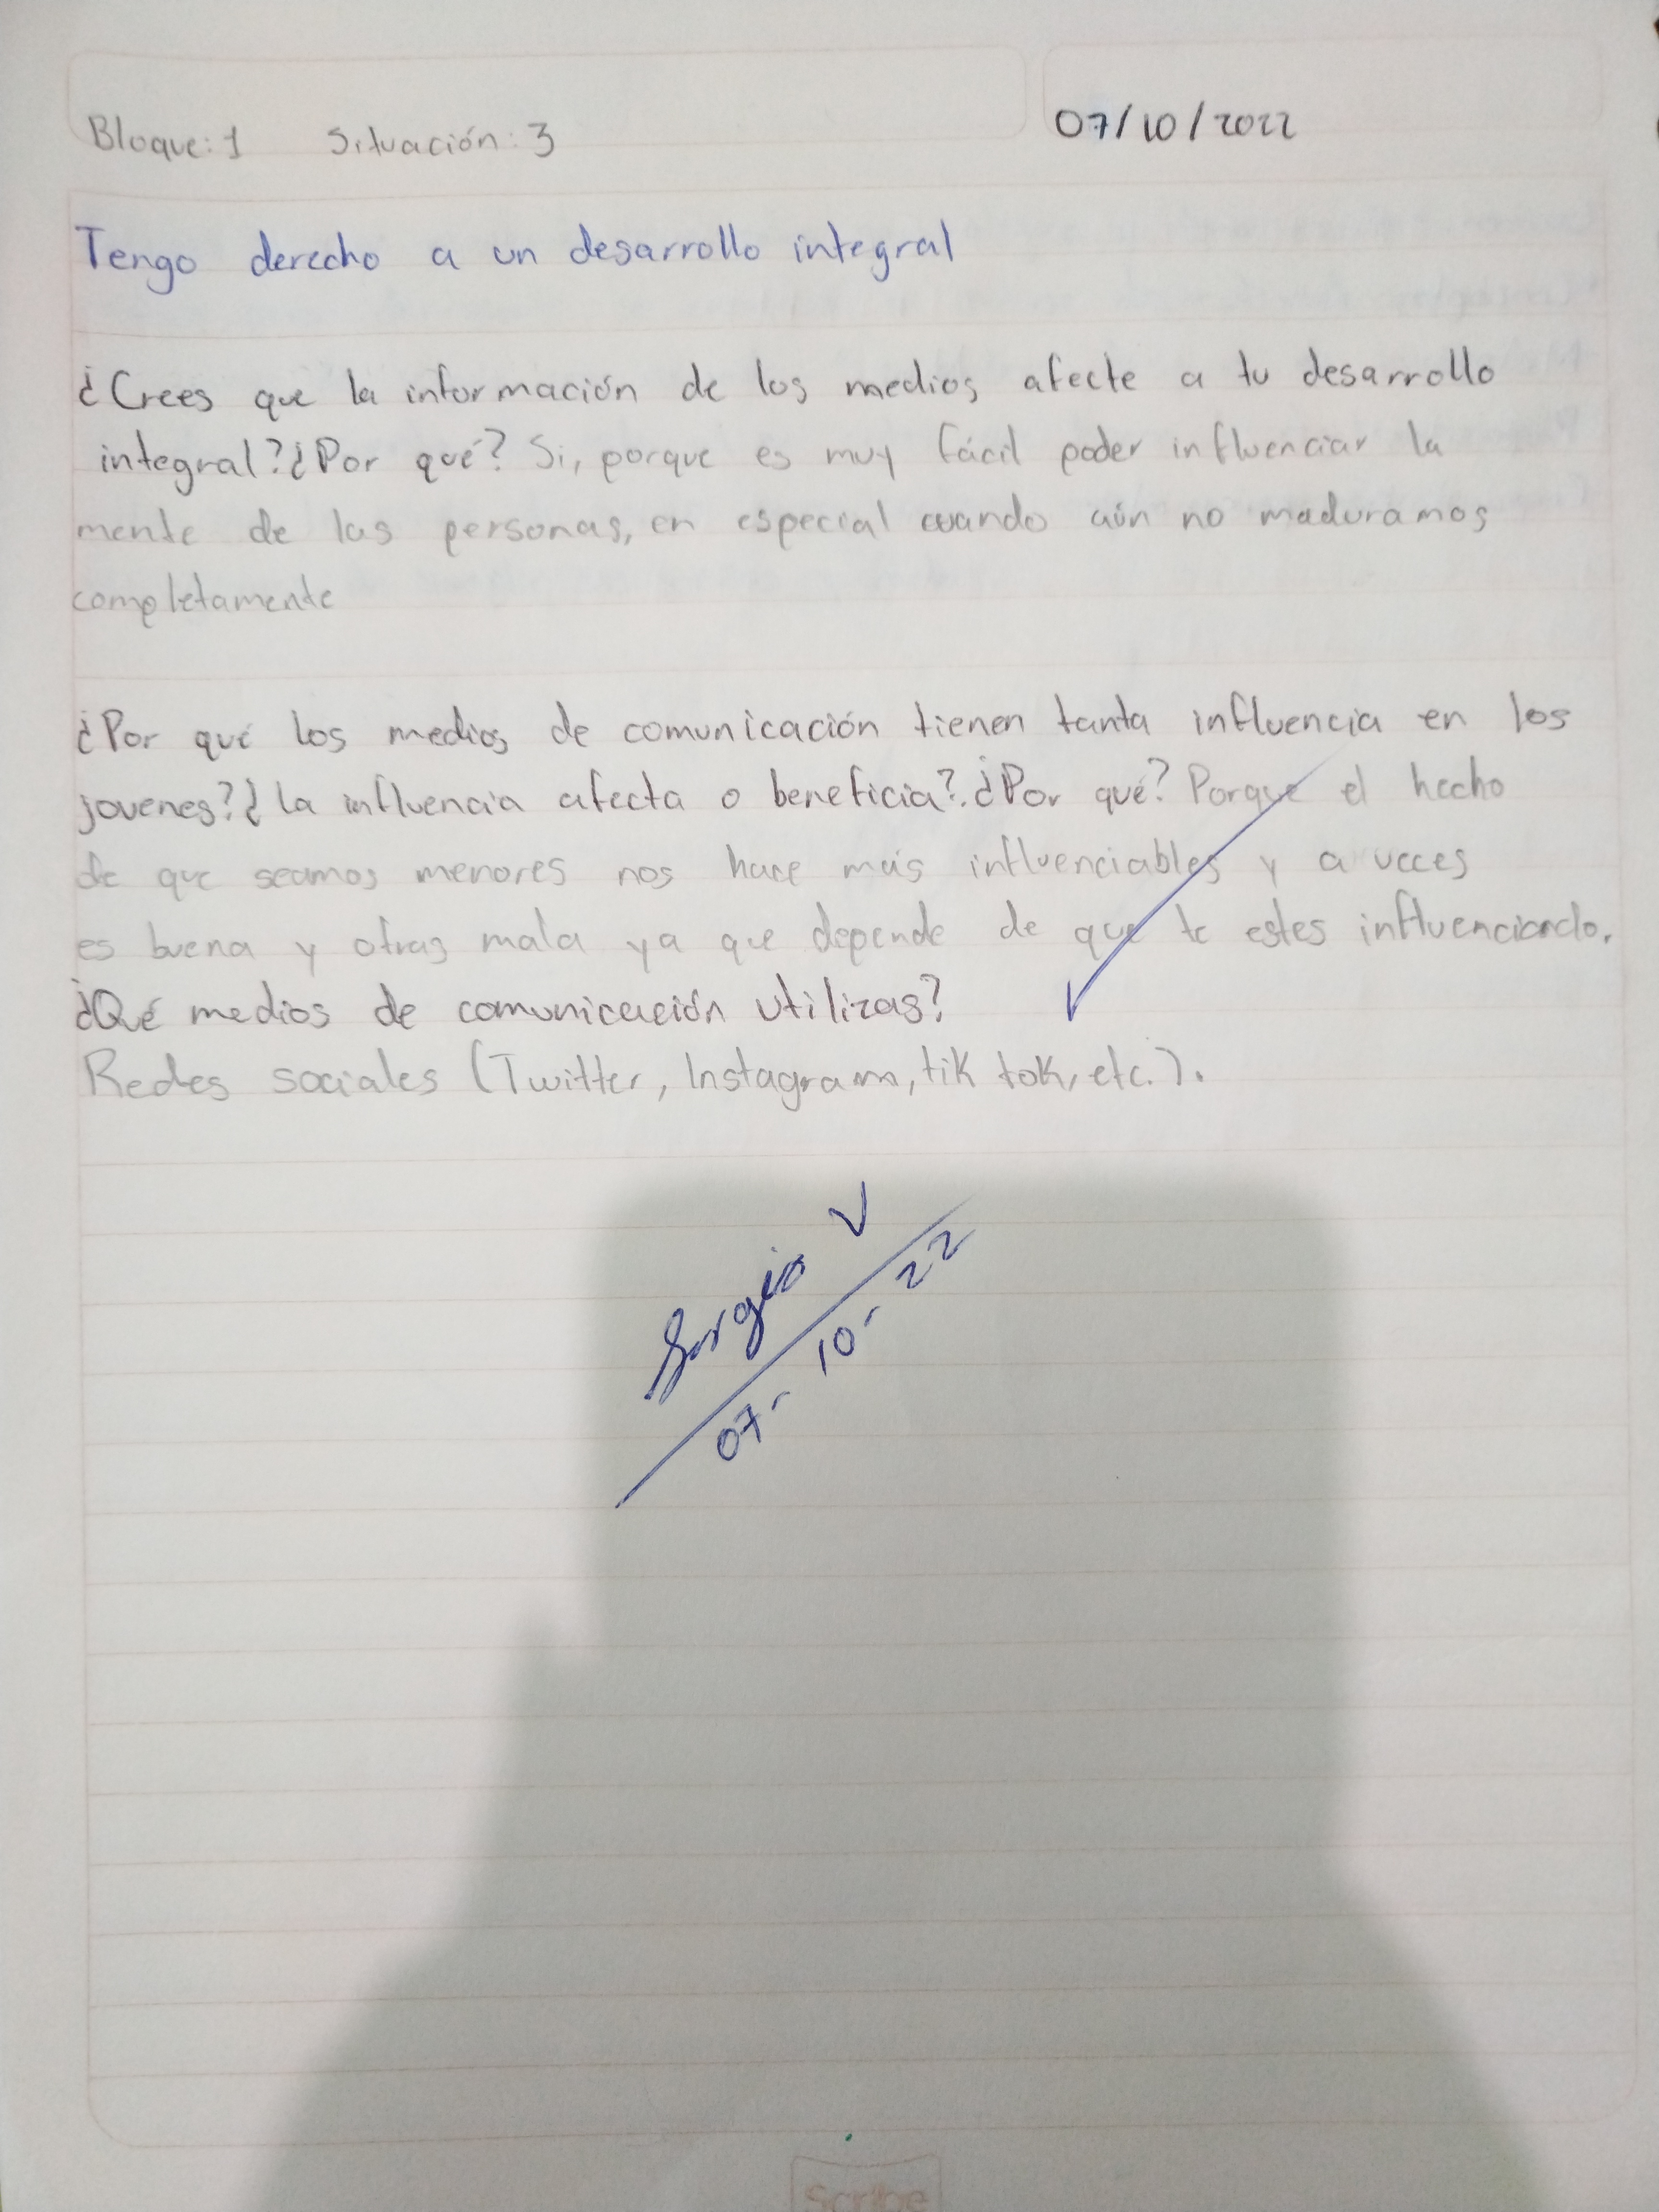 Bloque: 1 Situación: 3 07/10/2022
Tengo derecho a un desarrollo integral
¿Crees que la información de los medios afecte a tu desarrollo
integral? ¿Por qué? Si, porque es muy fácil poder influenciar la
mente de las personas, en especial cuando aún no maduramos
completamente
¿Por qué los medios de comunicación tienen tanta influencia en los
jovenes? ¿La influencia afecta o beneficia?. ¿Por qué? Porque el hecho
de que seamos menores nos hace más influenciables y a veces
es buena y otras mala ya que depende de que te estes influenciando.
¿Qué medios de comunicación utilizas?
Redes sociales (Twitter, Instagram, tik tok, etc.).
Sergio V
07-10-22
Scribe